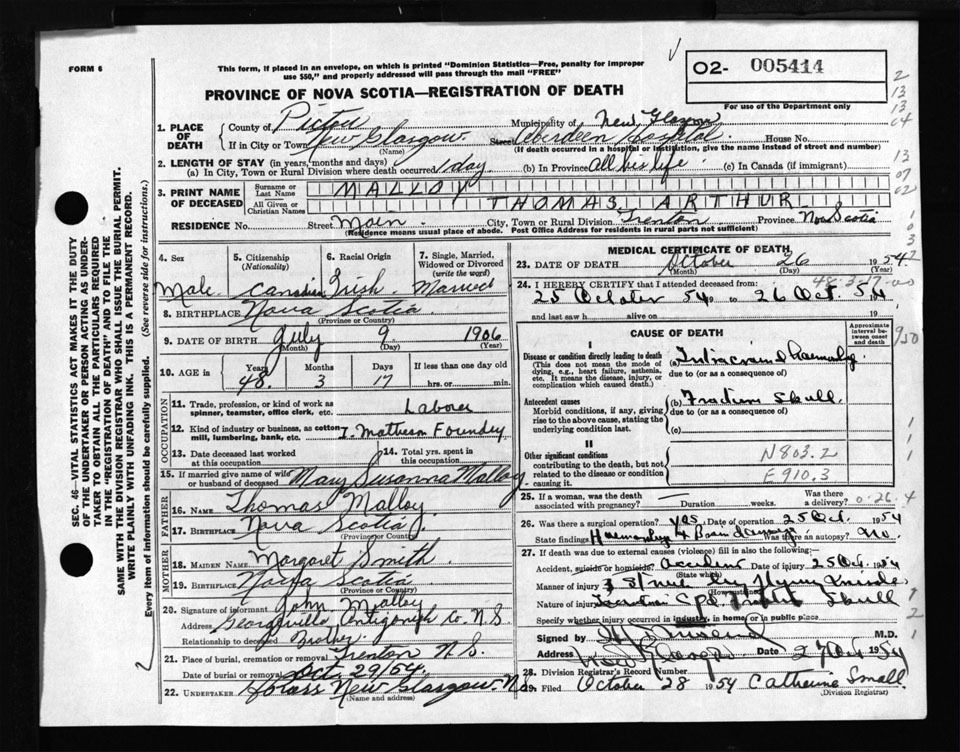 FORM 6
This form, if placed in an envelope, on which is printed "Dominion Statistics—Free, penalty for improper
use $50," and properly addressed will pass through the mail "FREE"
O2- 005414
For use of the Department only
PROVINCE OF NOVA SCOTIA—REGISTRATION OF DEATH
2
13
13
64
13
07
02
SEC. 46—VITAL STATISTICS ACT MAKES IT THE DUTY
OF THE UNDERTAKER OR PERSON ACTING AS UNDER-
TAKER TO OBTAIN ALL THE PARTICULARS REQUIRED
IN THE "REGISTRATION OF DEATH" AND TO FILE THE
SAME WITH THE DIVISION REGISTRAR WHO SHALL ISSUE THE BURIAL PERMIT.
WRITE PLAINLY WITH UNFADING INK. THIS IS A PERMANENT RECORD.
Every item of information should be carefully supplied. (See reverse side for instructions.)
1. PLACE OF DEATH
County of Pictou Municipality of New Glasgow
If in City or Town New Glasgow Street Aberdeen Hospital House No.
(Name) (If death occurred in a hospital or institution, give the name instead of street and number)
2. LENGTH OF STAY (in years, months and days)
(a) In City, Town or Rural Division where death occurred 1 day (b) In Province All his life (c) In Canada (if immigrant)
3. PRINT NAME OF DECEASED
Surname or Last Name MALLOY
All Given or Christian Names THOMAS ARTHUR
RESIDENCE No. Street Main City, Town or Rural Division Trenton Province Nova Scotia
(Residence means usual place of abode. Post Office Address for residents in rural parts not sufficient)
4. Sex 5. Citizenship (Nationality) 6. Racial Origin 7. Single, Married, Widowed or Divorced (write the word)
Male Canadian Irish Married
8. BIRTHPLACE Nova Scotia
(Province or Country)
9. DATE OF BIRTH July 9 1906
(Month) (Day) (Year)
10. AGE in Years Months Days If less than one day old
48 3 17 hrs. or min.
OCCUPATION
11. Trade, profession, or kind of work as
spinner, teamster, office clerk, etc. Laborer
12. Kind of industry or business, as cotton
mill, lumbering, bank, etc. I. Matheson Foundry
13. Date deceased last worked at this occupation 14. Total yrs. spent in this occupation
15. If married give name of wife
or husband of deceased Mary Susanna Malloy
FATHER
16. NAME Thomas Malloy
17. BIRTHPLACE Nova Scotia
(Province or Country)
MOTHER
18. MAIDEN NAME Margaret Smith
19. BIRTHPLACE Nova Scotia
(Province or Country)
20. Signature of informant John Malloy
Address Georgeville Antigonish Co. N.S.
Relationship to deceased Brother
21. Place of burial, cremation or removal Trenton N.S.
Date of burial or removal Oct 29/54
22. UNDERTAKER New Glasgow N.S.
(Name and address)
MEDICAL CERTIFICATE OF DEATH
23. DATE OF DEATH October 26 1954
(Month) (Day) (Year)
24. I HEREBY CERTIFY that I attended deceased from:
25 October 54 to 26 Oct. 54
and last saw h alive on 19
CAUSE OF DEATH
Approximate interval between onset and death
I
Disease or condition directly leading to death
(This does not mean the mode of
dying, e.g., heart failure, asthenia,
etc. It means the disease, injury, or
complication which caused death.)
(a) Intracranial Haemorrhage
due to (or as a consequence of)
Antecedent causes
Morbid conditions, if any, giving
rise to the above cause, stating the
underlying condition last.
(b) Fracture Skull
due to (or as a consequence of)
(c)
II
Other significant conditions
contributing to the death, but not
related to the disease or condition
causing it.
N803.2
E910.3
25. If a woman, was the death
associated with pregnancy? Duration weeks. Was there a delivery?
0.26.4
26. Was there a surgical operation? yes Date of operation 25 Oct. 1954
State findings Haemorrhage & Brain damage Was there an autopsy? No.
27. If death was due to external causes (violence) fill in also the following:—
Accident, suicide or homicide Accident Date of injury 25 Oct 1954
(State which)
Manner of injury Struck by flying
Nature of injury Skull
Specify whether injury occurred in industry, in home or in public place
Signed by M.D.
Address New Glasgow Date 27 Oct 1954
28. Division Registrar's Record Number
29. Filed October 28 1954 Catherine Small
(Division Registrar)